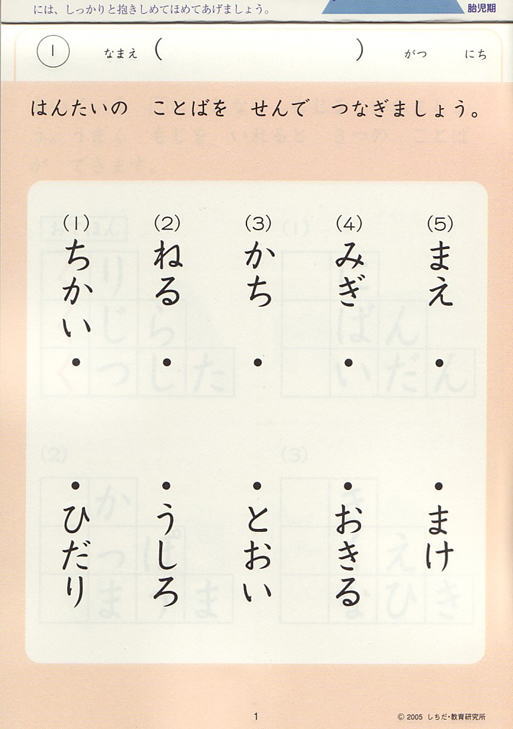 には、しっかりと抱きしめてほめてあげましょう。
胎児期
1 なまえ ( ) がつ にち
はんたいの ことばを せんで つなぎましょう。
(1) (2) (3) (4) (5)
ちかい
ねる
かち
みぎ
まえ
ひだり
うしろ
とおい
おきる
まけ
1
© 2005 しちだ・教育研究所